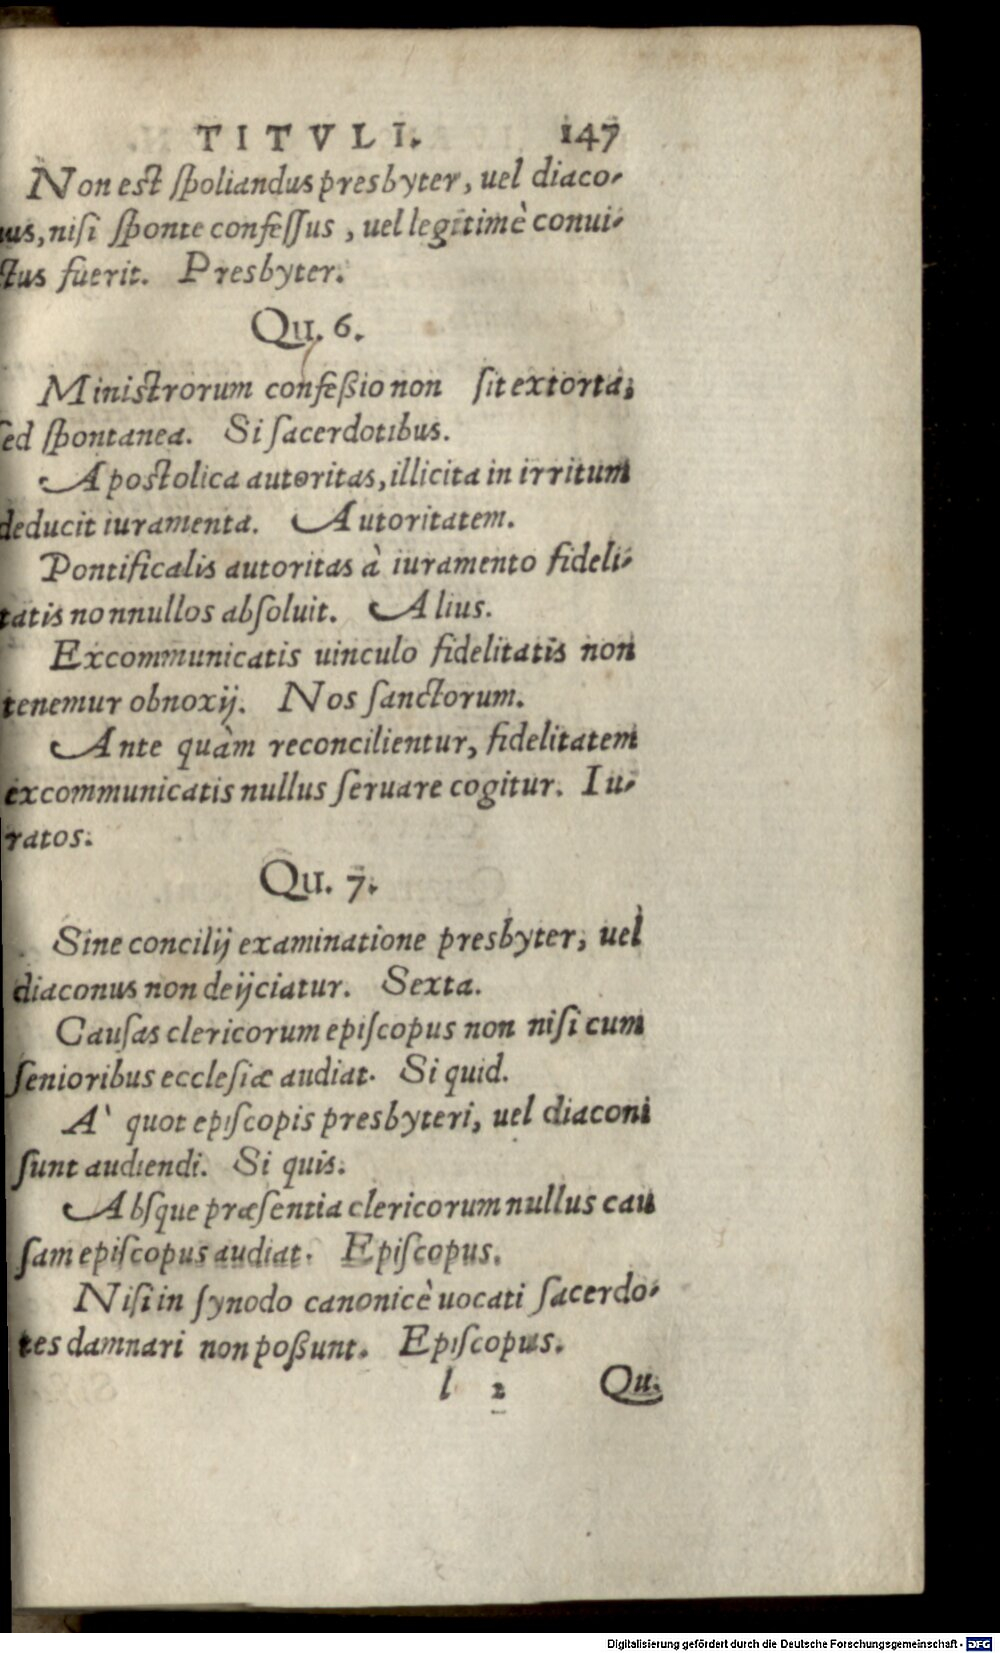 TITVLI. 147
Non est spoliandus presbyter, uel diaco-
nus, nisi sponte confessus, uel legitimè conui-
ctus fuerit. Presbyter.
Qu. 6.
Ministrorum confeßio non sit extorta,
sed spontanea. Si sacerdotibus.
Apostolica autoritas, illicita in irritum
deducit iuramenta. Autoritatem.
Pontificalis autoritas à iuramento fideli-
tatis nonnullos absoluit. Alius.
Excommunicatis uinculo fidelitatis non
tenemur obnoxij. Nos sanctorum.
Ante quàm reconcilientur, fidelitatem
excommunicatis nullus seruare cogitur. Iu-
ratos.
Qu. 7.
Sine concilij examinatione presbyter, uel
diaconus non deijciatur. Sexta.
Causas clericorum episcopus non nisi cum
senioribus ecclesiæ audiat. Si quid.
A` quot episcopis presbyteri, uel diaconi
sunt audiendi. Si quis.
Absque præsentia clericorum nullus cau
sam episcopus audiat. Episcopus.
Nisi in synodo canonicè uocati sacerdo-
tes damnari non poßunt. Episcopus.
l 2 Qu.
Digitalisierung gefördert durch die Deutsche Forschungsgemeinschaft - DFG